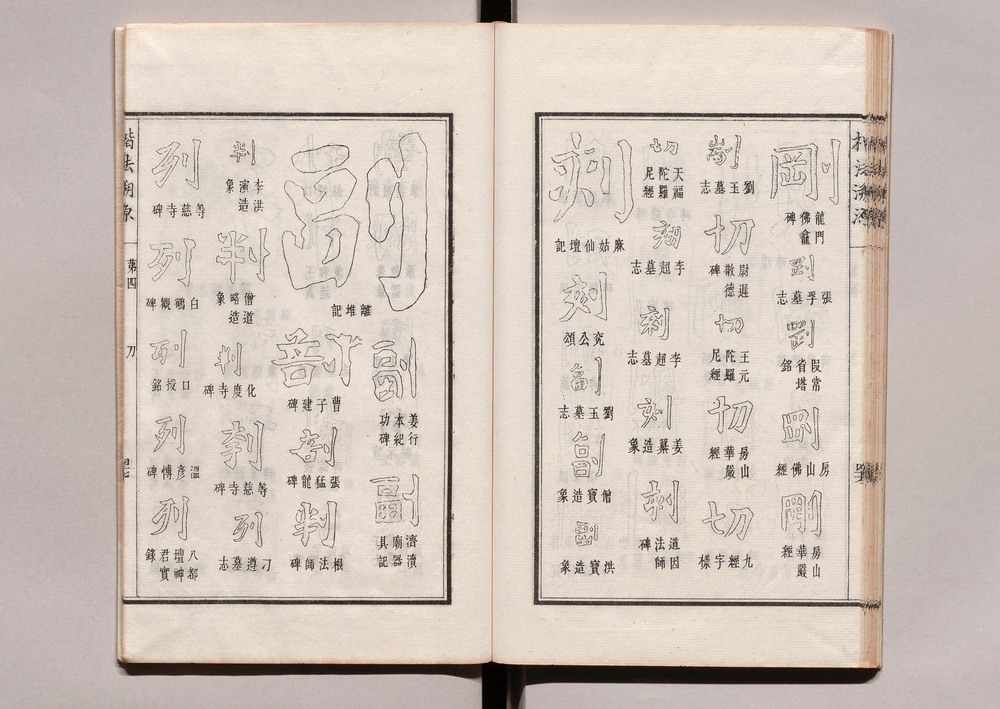 剛
龍門佛龕碑
剛
張孚墓志
剛
叚常省塔銘
剛
房山佛經
剛
房山華嚴經
剛
劉玉墓志
切
尉遲敬德碑
切
王元陀羅尼經
切
房山華嚴經
切
九經字樣
切
天福陀羅尼經
刻
李超墓志
刻
李超墓志
刻
姜纂造象
刻
道因法師碑
刻
麻姑仙壇記
刻
兖公頌
副
劉玉墓志
副
僧寶造象
副
洪寶造象
副
離堆記
副
姜行本紀功碑
副
濟瀆廟器具記
剖
曹子建碑
剖
張猛龍碑
判
根法師碑
判
李洪演造象
判
僧道略造象
判
化度寺碑
列
等慈寺碑
列
刁遵墓志
列
等慈寺碑
列
白鶴觀碑
列
口授銘
列
溫彥博碑
列
八都壇神君實錄
楷法溯原 第四 刀